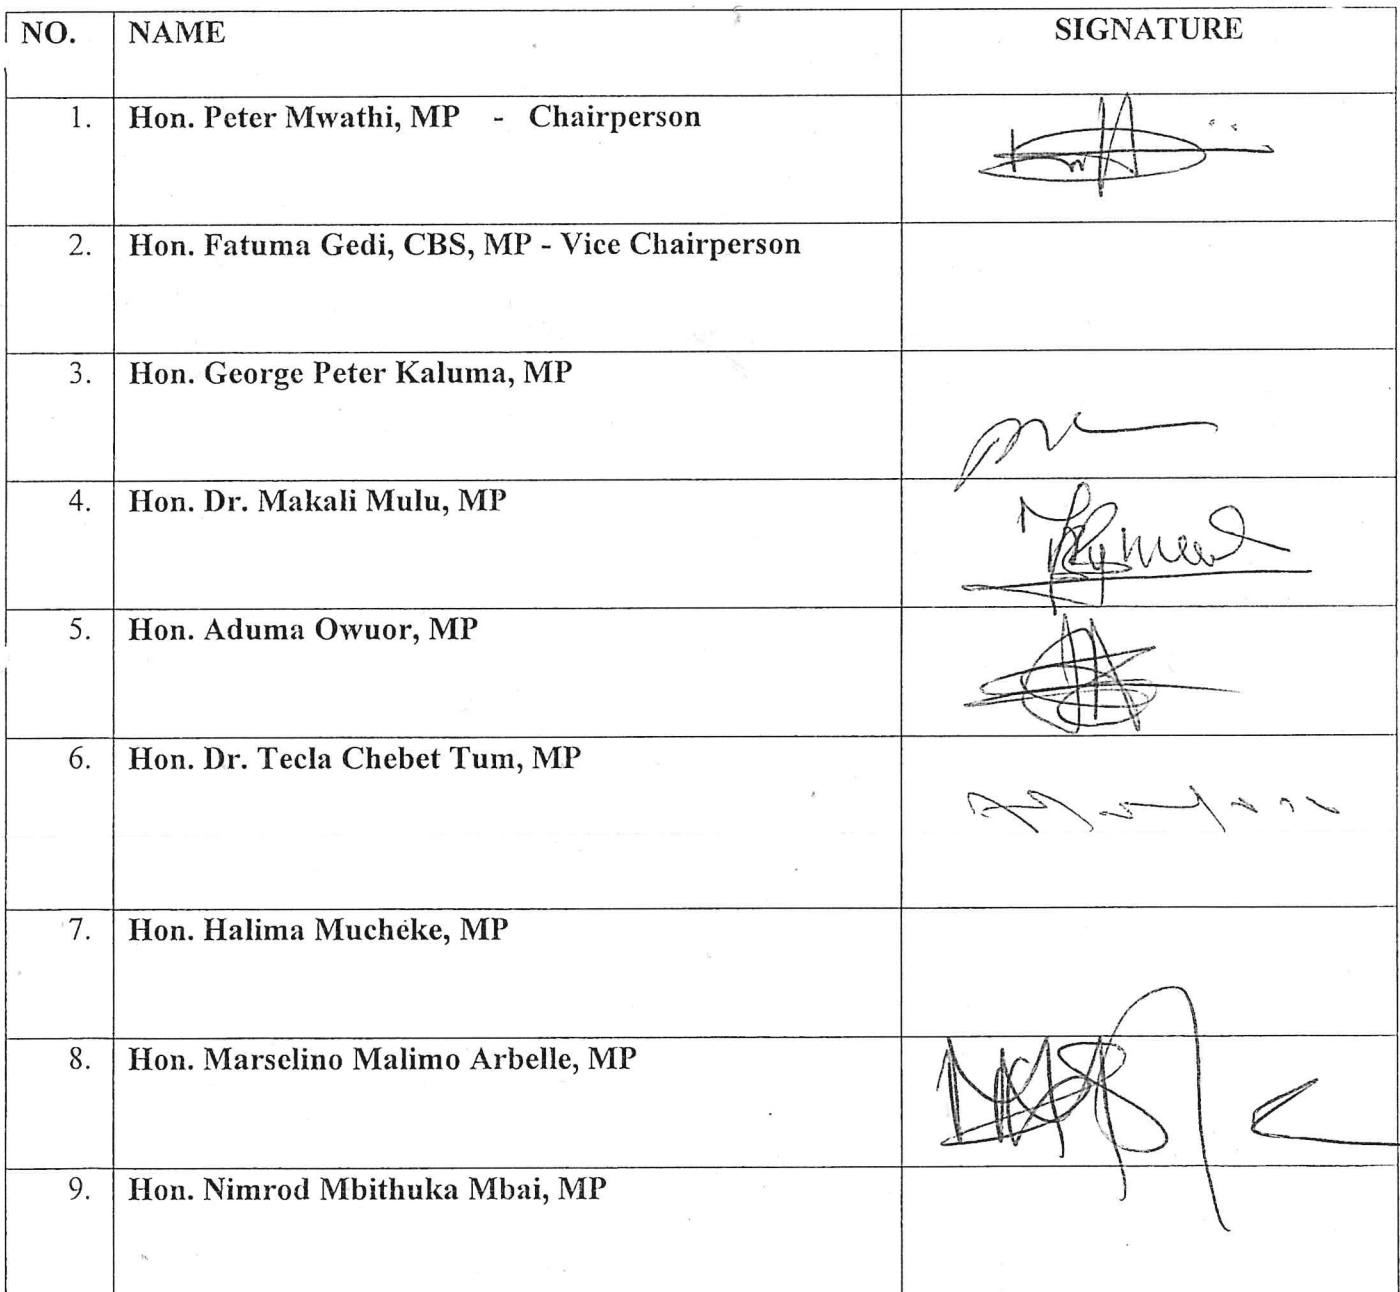 NO. NAME SIGNATURE
1. Hon. Peter Mwathi, MP - Chairperson
2. Hon. Fatuma Gedi, CBS, MP - Vice Chairperson
3. Hon. George Peter Kaluma, MP
4. Hon. Dr. Makali Mulu, MP
5. Hon. Aduma Owuor, MP
6. Hon. Dr. Tecla Chebet Tum, MP
7. Hon. Halima Mucheke, MP
8. Hon. Marselino Malimo Arbelle, MP
9. Hon. Nimrod Mbithuka Mbai, MP